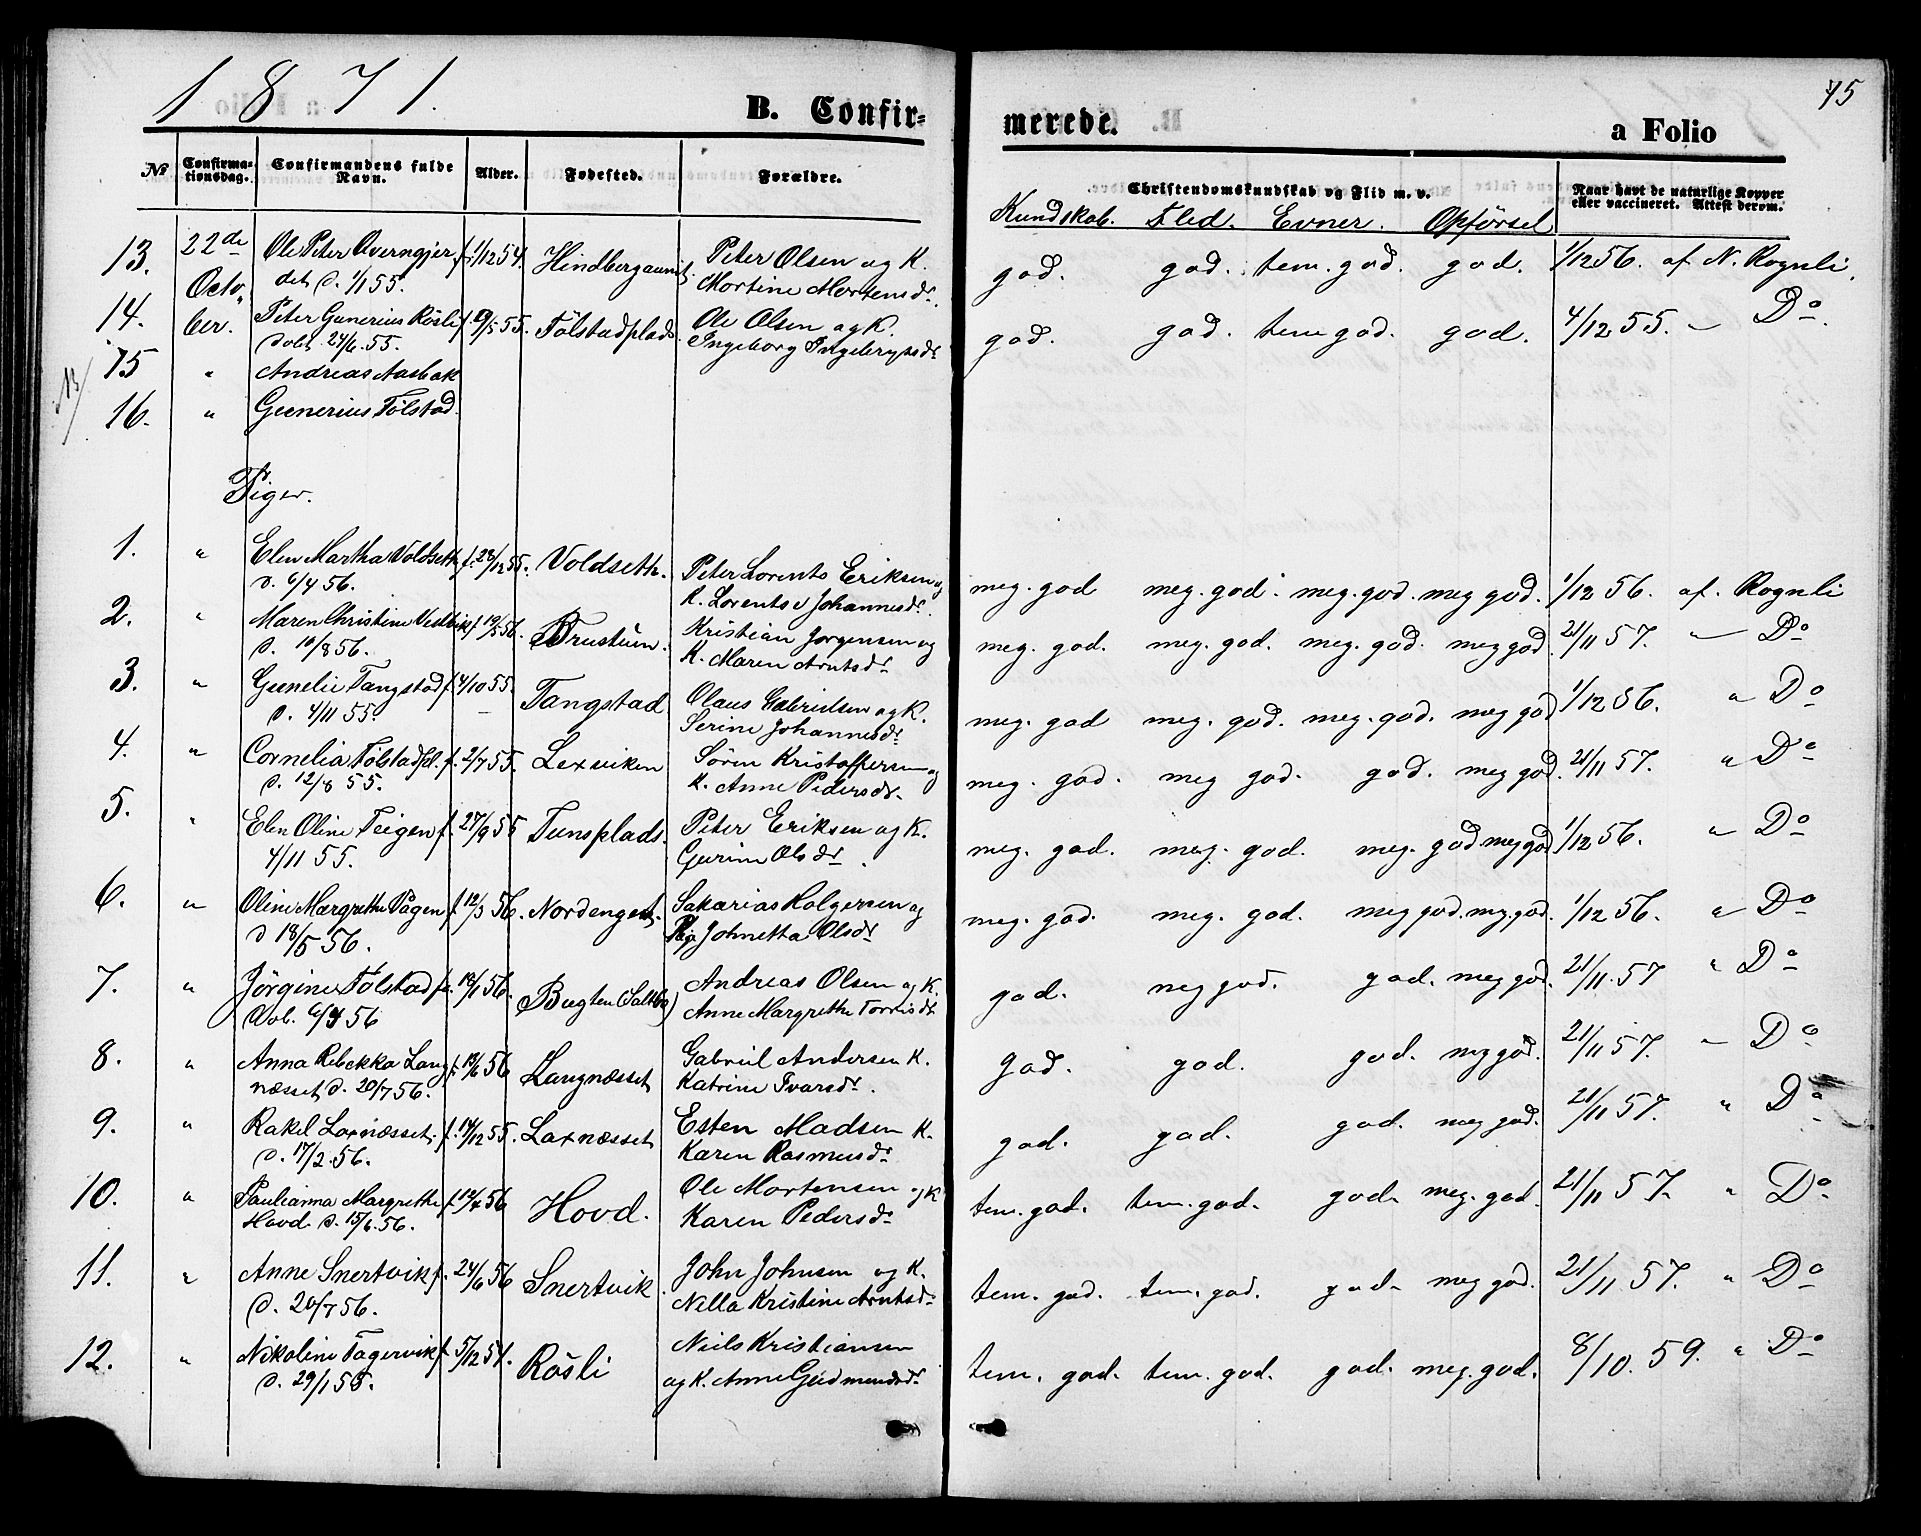 1871.
B. Confir=
merede.
a Folio
75
№
Confirma=
tionsdag.
Confirmandens fulde
Navn.
Alder.
Fødested.
Forældre.
Christendomskundskab og Flid m. v.
Kundskab. Flid. Evner. Opförsel
Naar havt de naturlige Kopper
eller vaccineret. Attest derom.
13. 22de Ole Peter Overngjer f. 1/12 54. Peter Olsen og K.
Octo det d. 1/1 55. Mortine Mortensdr.
god. god. tem. god. god. 1/12 56. af N. Rognli.
14. ber. Peter Gunerius Rösli f 9/5 55. Tölstadplads. Ole Olsen og K.
döbt 24/6. 55. Ingeborg Ingebrgtsdr
god. god. tem god. god. 4/12 55. " Do.
15 " Andreas Aasbak
16. " Gunerius Tölstad.
Piger.
1. " Elen Martha Voldseth f. 28/12 55. Voldseth. Peter Lorents Eriksen og
d. 6/4 56. K. Lorentse Johannesdr.
meg. god meg. god. meg. god. meg god. 1/12 56. af. Rognli
2. " Maren Christine Vestvik f 19/5 56. Trustuen. Kristian Jorgensen og
d. 10/8 56. K. Maren Arntsdr
meg. god. meg. god. meg. god. meg god. 21/11 57. " Do
3. " Gunelie Tangstad f. 4/10 55. Tangstad Olaus Gabrielsen og K.
d. 4/11 55. Serine Johannesdr
meg. god meg. god. meg. god. meg god 1/12 56. " Do
4. " Cornelia Tölstadpl. f. 2/7 55. Lexviken Sören Kristoffersen og
d. 12/8 55. K. Anne Pedersdr.
meg. god. meg god. god. meg god. 21/11 57. " Do
5. " Elen Oline Teigen f. 27/9 55 Tunsplads. Peter Eriksen og K.
4/11 55. Gurine Olsdr.
meg. god. meg. god. meg. god meg god 1/12 56. " Do
6. " Oline Margrethe Vågen f. 12/3 56. Nordenget. Sakarias Holgersen og
d 18/5 56. Pig. Johnetta Olsdr
meg. god. meg. god. meg god. meg. god. 1/12 56. " Do
7. " Jörgine Tölstad f. 18/1 56. Bugten (Saltb) Andreas Olsen og K.
Döb. 6/4 56 Anne Margrethe Torrisdr
god. meg god. god. meg god. 21/11. 57 " Do
8. " Anna Rebekka Lang f. 13/6 56 Langnæsset Gabriel Andersen K.
næsset d. 20/7 56. Katrine Ivarsdr.
god. god. god. meg god. 21/11 57. " Do
9. " Rakel Laxnæsset. f. 14/12 55. Laxnæsset Esten Madsen K.
d. 17/2. 56. Karen Rasmusdr
god. god. god. meg god. 21/11 57. " Do
10. " Paulianna Margrethe f. 12/4 56 Hovd. Ole Mortensen og K
Hovd d. 15/6. 56. Karen Pedersdr
tem. god. tem. god. god. meg. god 21/11 57. " Do
11. " Anne Snertvik f. 24/6 56 Snertvik. John Johnsen og K.
d. 20/7 56. Nilla Kristine Arntsdr
tem. god. tem. god. god. meg god. 21/11 57. " Do
12. " Nikoline Fagervik f. 5/12 54. Rösli Niels Kristiansen
d. 29/1 55. og K. Anne Gudmundsdr
tem. god. tem. god. god. meg. god. 8/10. 59. " Do